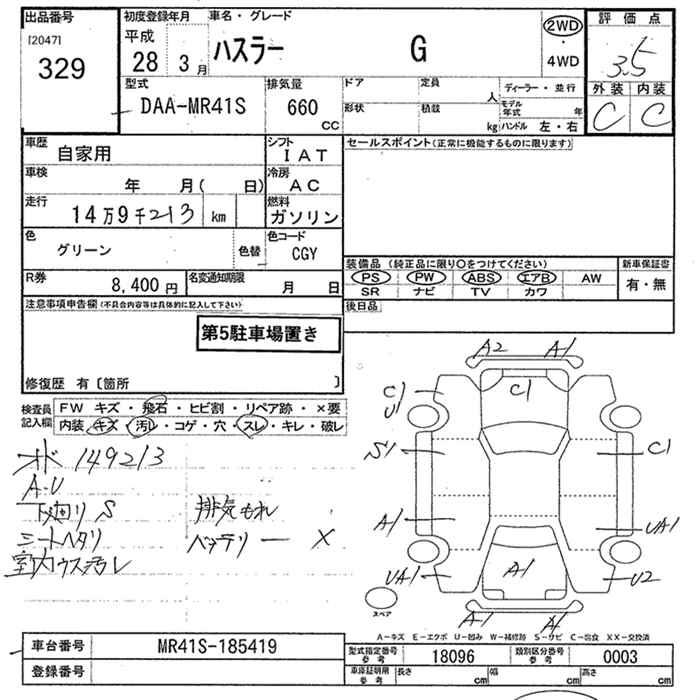 出品番号
[2047]
329
初度登録年月
平成
28 3月
車名・グレード
ハスラー G
2WD
・
4WD
評価点
3.5
外装 内装
C C
型式
DAA-MR41S
排気量
660
CC
ドア
形状
定員
人
積載
kg
ディーラー・並行
モデル年式 年
ハンドル 左・右
車歴
自家用
シフト
IAT
車検
年 月( 日)
冷房
AC
走行
14万9千213 km
燃料
ガソリン
色
グリーン
色替
色コード
CGY
R券
8,400円
名変通知期限
月 日
セールスポイント(正常に機能するものに限ります)
装備品 (純正品に限り○をつけてください)
PS PW ABS エアB AW
SR ナビ TV カワ
新車保証書
有・無
後日品
注意事項申告欄(不具合内容等は具体的に記入して下さい)
第5駐車場置き
修復歴 有〔箇所 〕
検査員記入欄
FW キズ・飛石・ヒビ割・リペア跡・×要
内装・キズ・汚レ・コゲ・穴・スレ・キレ・破レ
オド 149213
A-U
下廻りS 排気もれ
シートヘタリ バッテリー X
室内ウス汚レ
A2 A1
C1
U1
C1
S1
C1
A1
UA1
UA1
A1
U2
A1 A1
スペア
A-キズ E-エクボ U-凹み W-補修跡 S-サビ C-腐食 XX-交換済
車台番号
MR41S-185419
登録番号
型式指定番号
参考
18096
類別区分番号
参考
0003
車庫証明用
参考
長さ cm
幅 cm
高さ cm